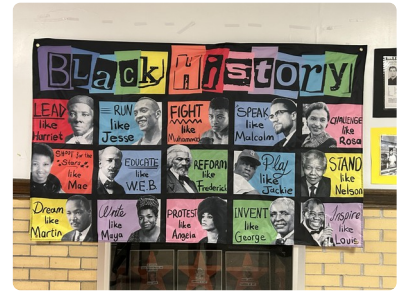 Black History
LEAD
like
Harriet
RUN
like
Jesse
FIGHT
like
Muhammad
SPEAK
like
Malcolm
CHALLENGE
like
Rosa
Shoot for the
"Stars"
like
Mae
EDUCATE
like
W.E.B
REFORM
like
Frederick
Play
like
Jackie
STAND
like
Nelson
Dream
like
Martin
Write
like
Maya
PROTEST
like
Angela
INVENT
like
George
Inspire
like
Louis